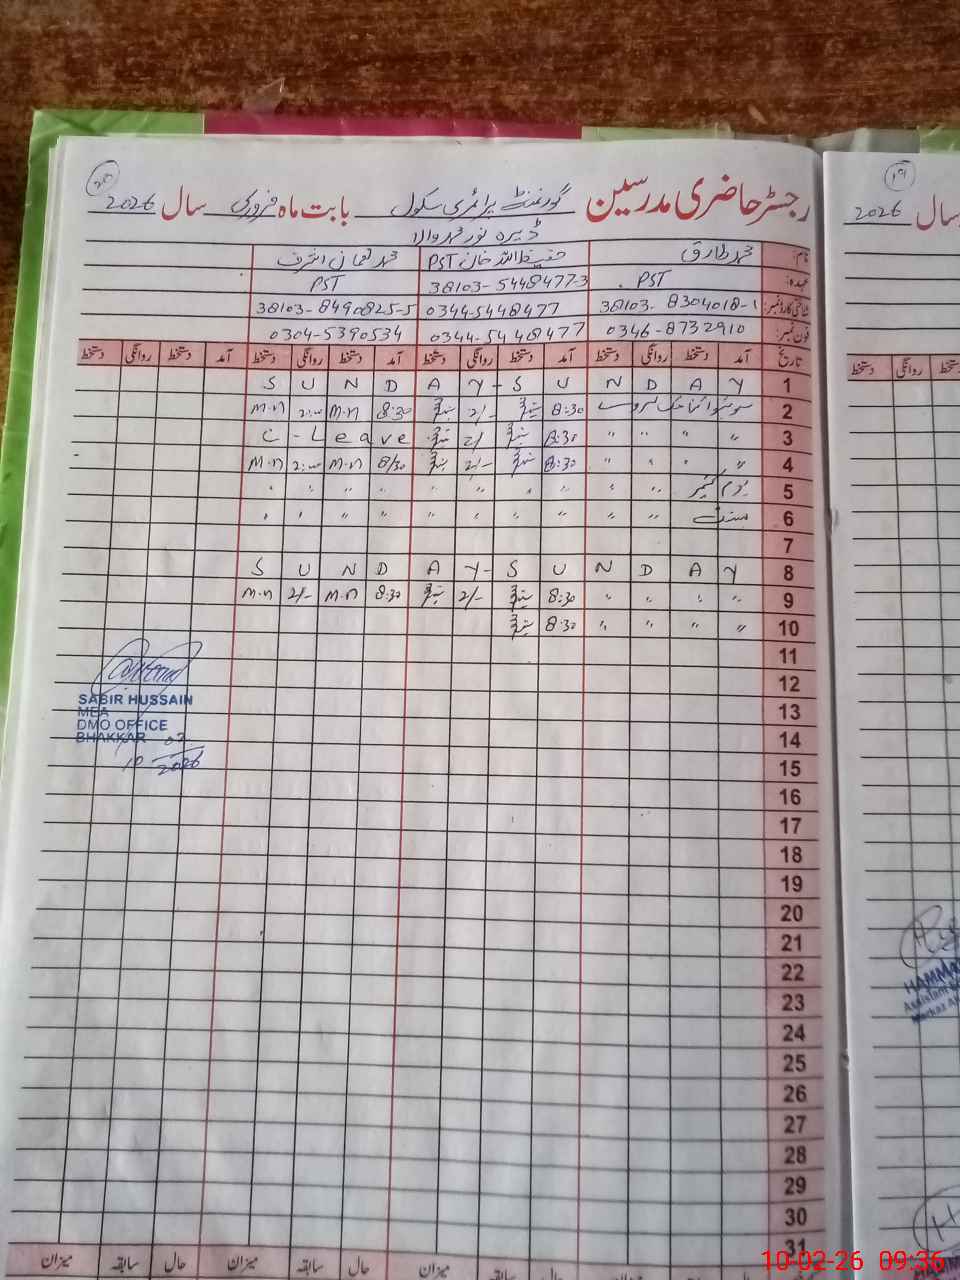 رجسٹر حاضری مدرسین گورنمنٹ پرائمری سکول بابت ماہ فروری سال 2026
20
ڈیرہ نور محمد والا
نام: محمد طارق حفیظ اللہ خان PST محمد نعمان اشرف
عہدہ: PST 38103-5448477-3 PST
شناختی کارڈ نمبر: 38103-8304018-1 0344-5448477 38103-8490825-5
فون نمبر: 0346-8732910 0344-5448477 0304-5390534
تاریخ آمد دستخط روانگی دستخط آمد دستخط روانگی دستخط آمد دستخط روانگی دستخط آمد دستخط روانگی دستخط
1 S U N D A Y - S U N D A Y
2 8:30 2/- 8:30 M.n 2:00 M.n
3 " " " " 8:30 2/ C - Leave
4 " " " " 8:30 2/- 8/30 M.n 2:00 M.n
5 یوم کشمیر " " " " " " " " " "
6 " " " " " " " " " "
7
8 S U N D A Y - S U N D A Y
9 " " " " 8:30 2/- 8:30 M.n 2/- M.n
10 " " " " 8:30
11
12
13
14
15
16
17
18
19
20
21
22
23
24
25
26
27
28
29
30
31
SABIR HUSSAIN
MEA
DMO OFFICE
BHAKKAR
10 02
2026
میزان سابقہ حال میزان سابقہ حال میزان سابقہ حال میزان
19
سال 2026
دستخط روانگی دستخط
HAMMA
Assistant
Markaz
10-02-26 09:36